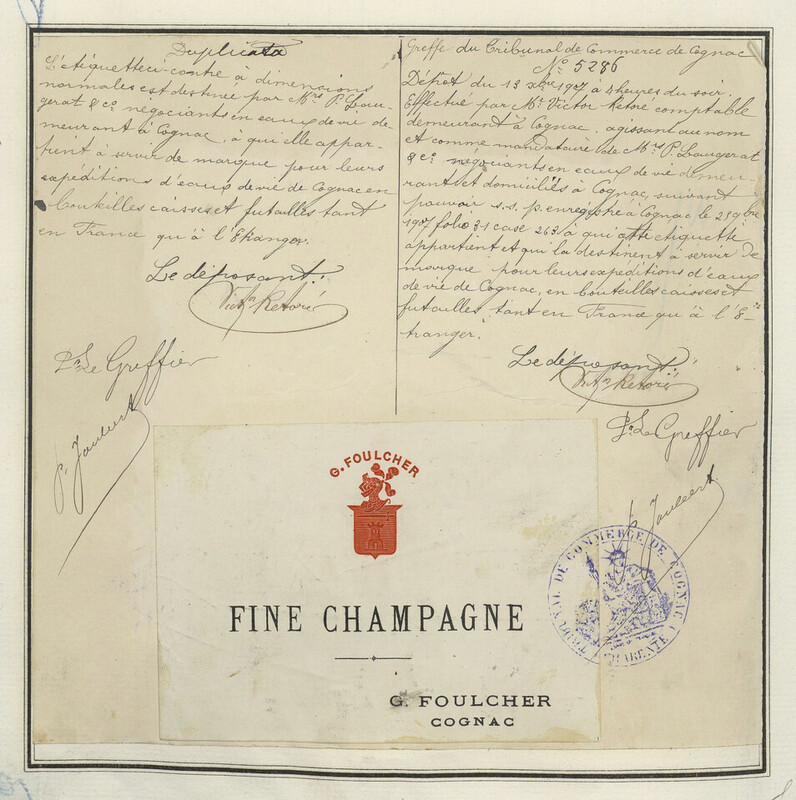 Duplicata
L'étiquette ci-contre à dimensions
normales est destinée par Mrs P. Lau-
gerat & co négociants en eaux de vie de-
meurant à Cognac, à qui elle appar-
tient à servir de marque pour leurs
expéditions d'eaux de vie de Cognac en
bouteilles caisses et futailles tant
en France qu'à l'Etranger.
Le déposant:
Victor Retoré
Pr Le Greffier
Greffe du Tribunal de Commerce de Cognac
No 5286
Dépôt du 13 xbre 1907 à 4 heures du soir.
Effectué par Mr Victor Retoré comptable
demeurant à Cognac, agissant au nom
et comme mandataire de Mrs P. Laugerat
& co négociants en eaux de vie demeu-
rant et domiciliés à Cognac, suivant
pouvoir s.s.p. enregistré à Cognac le
1907 folio 31 case 263 à qui cette étiquette
appartient et qui la destinent à servir de
marque pour leurs expéditions d'eaux
de vie de Cognac, en bouteilles caisses et
futailles, tant en France qu'à l'E-
tranger.
Le déposant:
Victor Retoré
Pr Le Greffier
G. FOULCHER
FINE CHAMPAGNE
G. FOULCHER
COGNAC
TRIBUNAL DE COMMERCE DE COGNAC (CHARENTE)